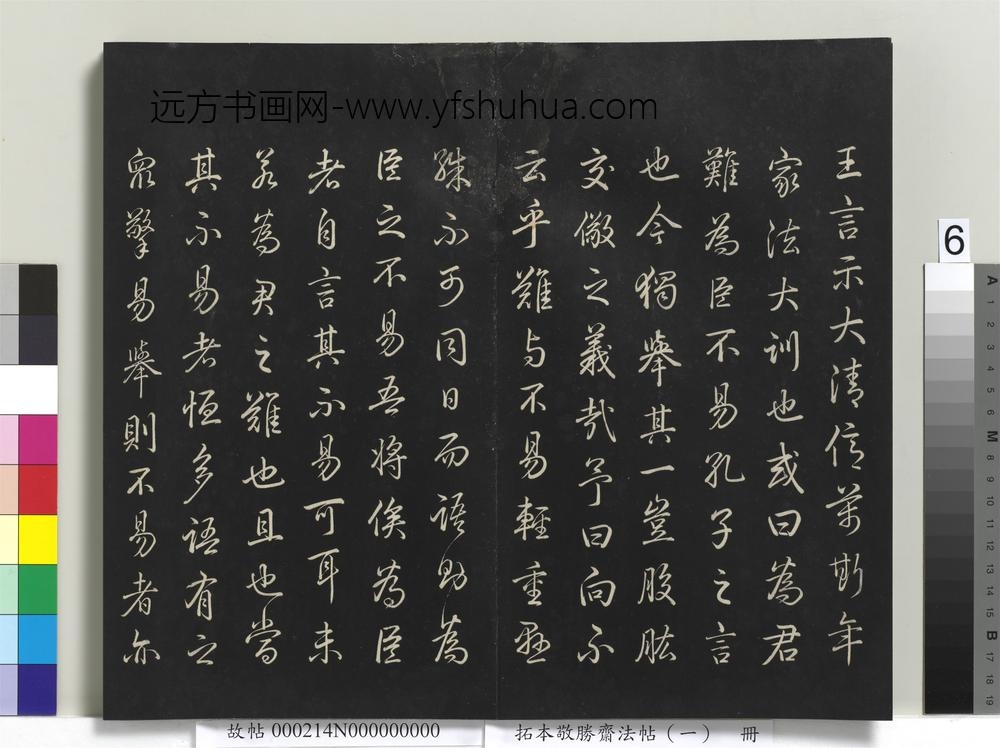 远方书画网-www.yfshuhua.com
王言示大清億萬斯年
家法大训也或曰為君
難為臣不易孔子之言
也今獨舉其一豈股肱
交儆之義哉予曰向不
云乎難與不易輕重懸
殊不可同日而語助為
臣之不易吾将俟為臣
者自言其不易可耳未
若為君之難也且也當
其不易者恒多語有之
衆擎易舉則不易者亦
6
A
1
2
3
4
5
6
M
8
9
10
11
12
13
14
15
B
17
18
19
故帖 000214N000000000
拓本敬勝齋法帖（一） 冊